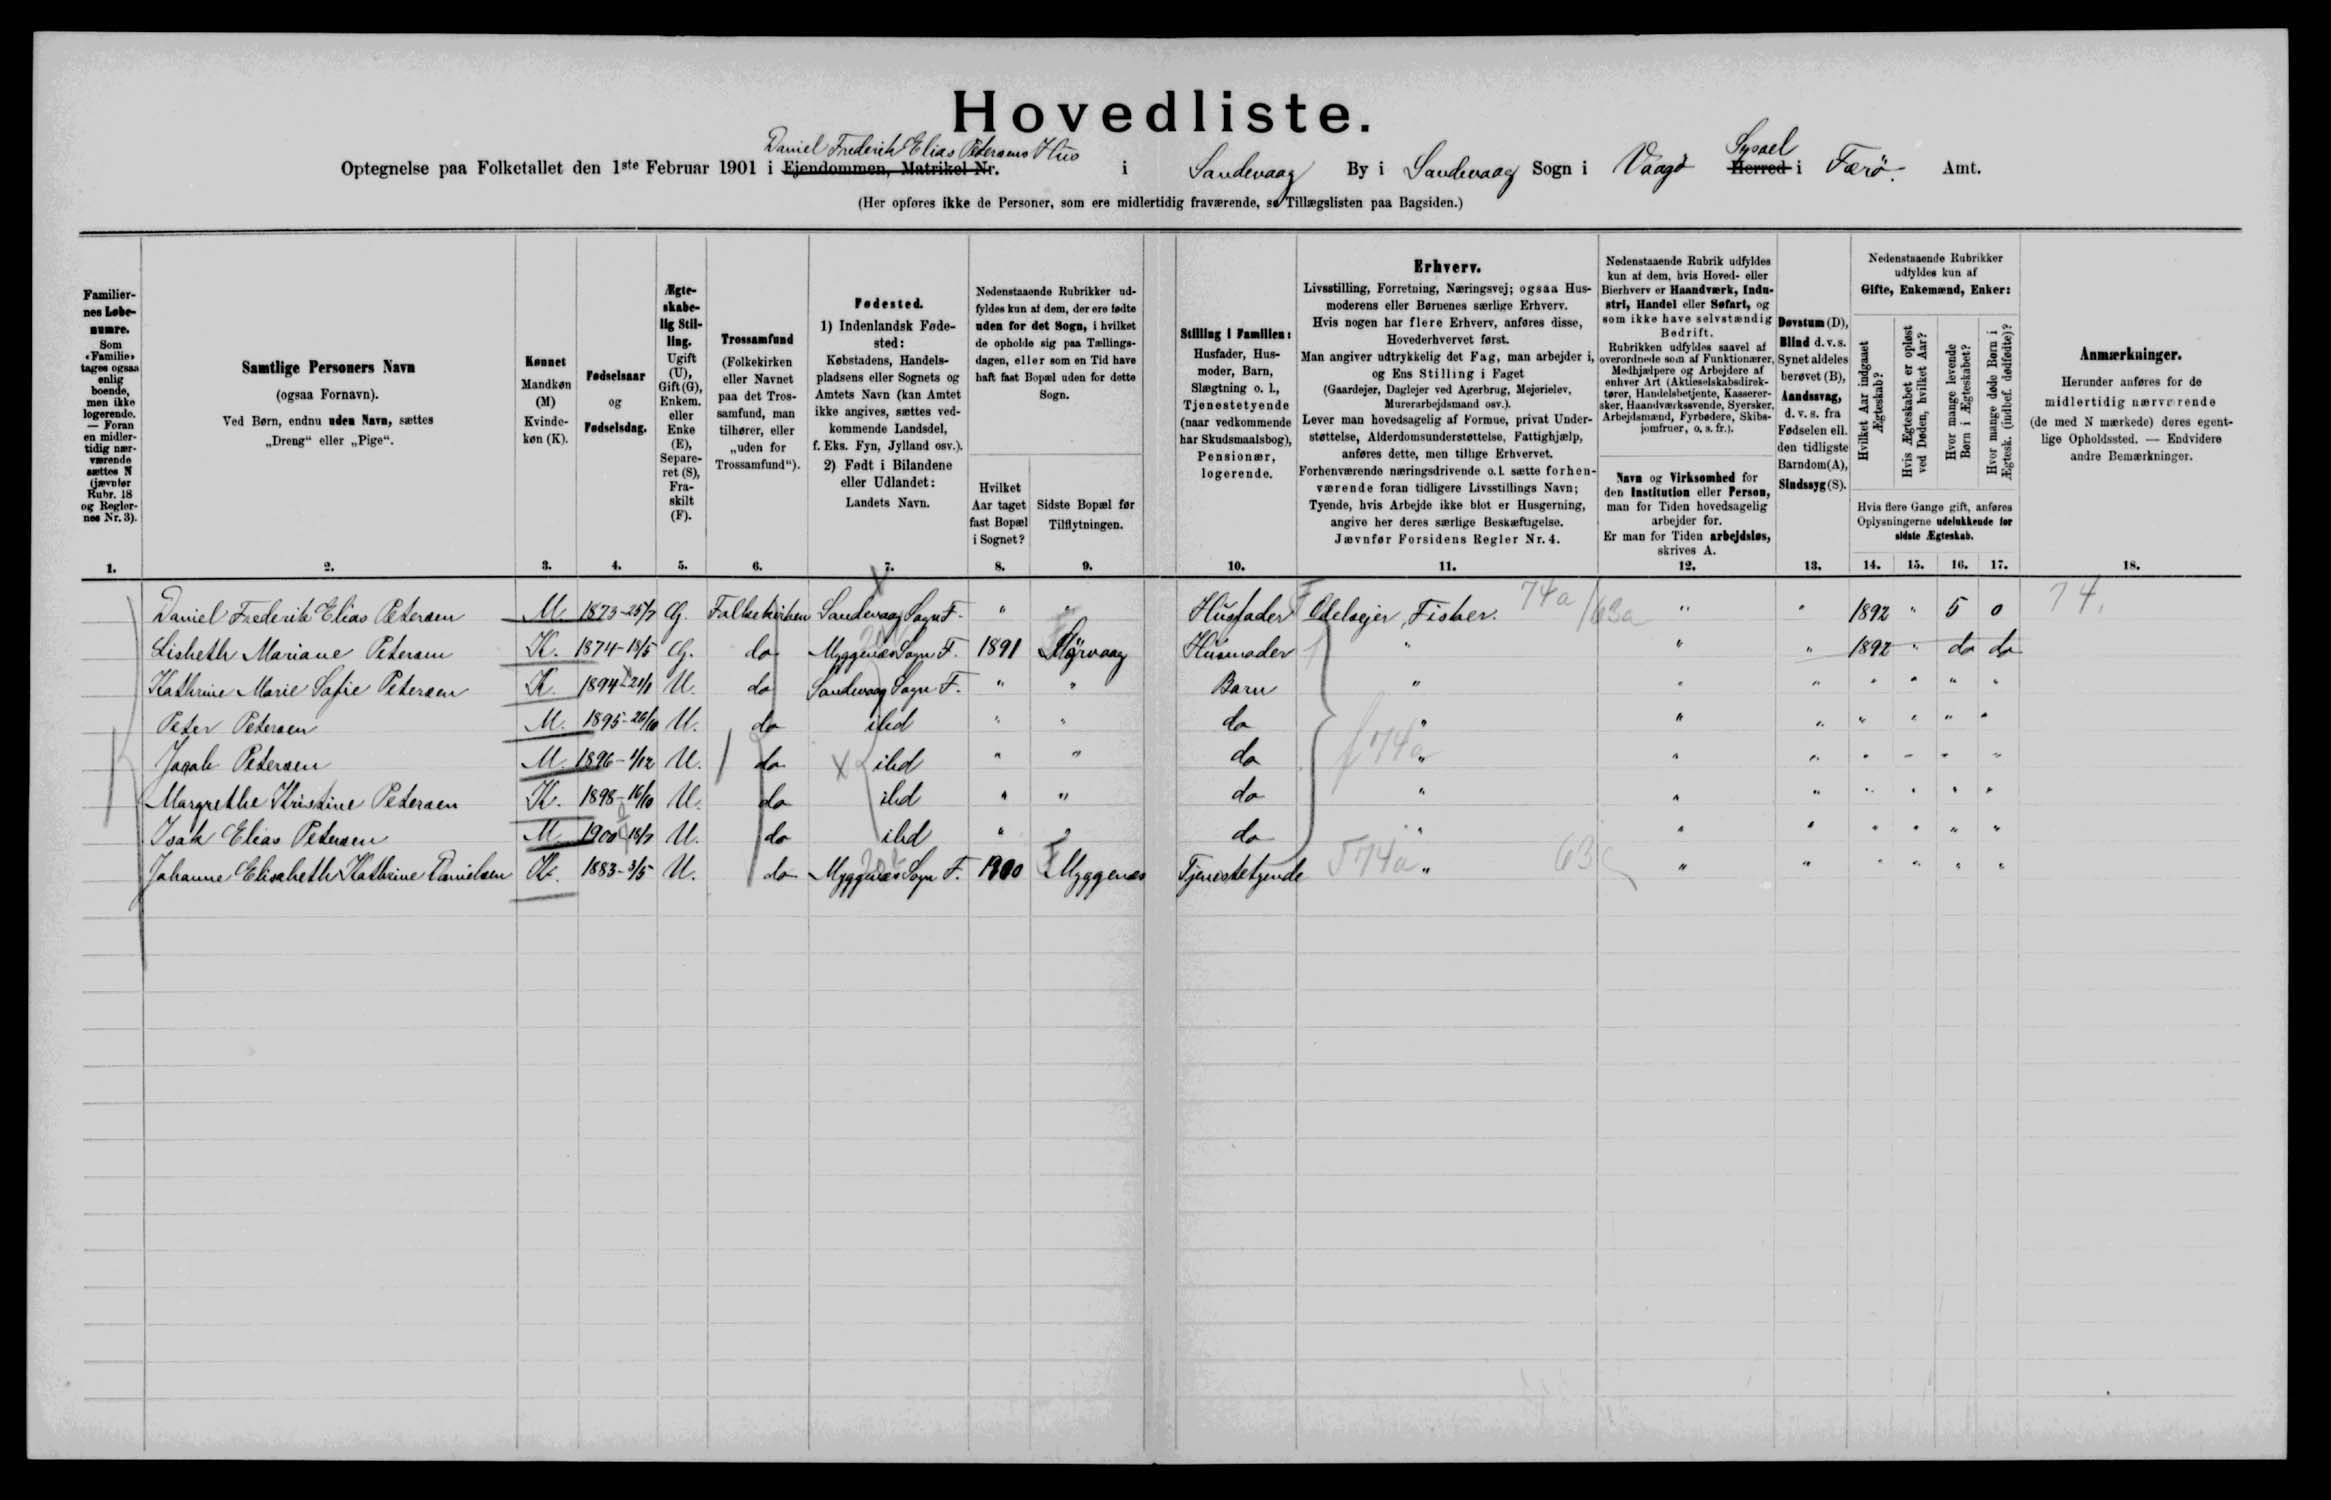 Hovedliste.
Daniel Frederik Elias Petersens Hus
Sysael
Optegnelse paa Folketallet den 1ste Februar 1901 i Ejendommen, Matrikel Nr. i Sandevaag By i Sandevaag Sogn i Vaagø Herred i Færö. Amt.
(Her opføres ikke de Personer, som ere midlertidig fraværende, se Tillægslisten paa Bagsiden.)
Familiernes Løbenumre. Som «Familie» tages ogsaa enlig boende, men ikke logerende. — Foran en midlertidig nærværende sættes N (jævnfør Rubr. 18 og Reglernes Nr. 3).
Samtlige Personers Navn
(ogsaa Fornavn).
Ved Børn, endnu uden Navn, sættes
„Dreng“ eller „Pige“.
Kønnet
Mandkøn (M)
Kvindekøn (K).
Fødselsaar
og
Fødselsdag.
Ægteskabelig Stilling.
Ugift (U), Gift (G), Enkem. eller Enke (E), Separeret (S), Fraskilt (F).
Trossamfund
(Folkekirken eller Navnet paa det Trossamfund, man tilhører, eller „uden for Trossamfund“).
Fødested.
1) Indenlandsk Fødested:
Købstadens, Handelspladsens eller Sognets og Amtets Navn (kan Amtet ikke angives, sættes vedkommende Landsdel, f. Eks. Fyn, Jylland osv.).
2) Født i Bilandene eller Udlandet:
Landets Navn.
Nedenstaaende Rubrikker udfyldes kun af dem, der ere fødte uden for det Sogn, i hvilket de opholde sig paa Tællingsdagen, eller som en Tid have haft fast Bopæl uden for dette Sogn.
Hvilket Aar taget fast Bopæl i Sognet?
Sidste Bopæl før Tilflytningen.
Stilling i Familien:
Husfader, Husmoder, Barn, Slægtning o. l., Tjenestetyende (naar vedkommende har Skudsmaalsbog), Pensionær, logerende.
Erhverv.
Livsstilling, Forretning, Næringsvej; ogsaa Husmoderens eller Børnenes særlige Erhverv.
Hvis nogen har flere Erhverv, anføres disse, Hovederhvervet først.
Man angiver udtrykkelig det Fag, man arbejder i, og Ens Stilling i Faget
(Gaardejer, Daglejer ved Agerbrug, Mejerielev, Murerarbejdsmand osv.).
Lever man hovedsagelig af Formue, privat Understøttelse, Alderdomsunderstøttelse, Fattighjælp, anføres dette, men tillige Erhvervet.
Forhenværende næringsdrivende o. l. sætte forhenværende foran tidligere Livsstillings Navn; Tyende, hvis Arbejde ikke blot er Husgerning, angive her deres særlige Beskæftigelse.
Jævnfør Forsidens Regler Nr. 4.
Nedenstaaende Rubrik udfyldes kun af dem, hvis Hoved- eller Bierhverv er Haandværk, Industri, Handel eller Søfart, og som ikke have selvstændig Bedrift.
Rubrikken udfyldes saavel af overordnede som af Funktionærer, Medhjælpere og Arbejdere af enhver Art (Aktieselskabsdirektører, Handelsbetjente, Kasserersker, Haandværkssvende, Syersker, Arbejdsmænd, Fyrbødere, Skibsjomfruer, o. s. fr.).
Navn og Virksomhed for den Institution eller Person, man for Tiden hovedsagelig arbejder for.
Er man for Tiden arbejdsløs, skrives A.
Døvstum (D), Blind d. v. s. Synet aldeles berøvet (B), Aandssvag, d. v. s. fra Fødselen ell. den tidligste Barndom (A), Sindssyg (S).
Nedenstaaende Rubrikker udfyldes kun af Gifte, Enkemænd, Enker:
Hvilket Aar indgaaet Ægteskab?
Hvis Ægteskabet er opløst ved Døden, hvilket Aar?
Hvor mange levende Børn i Ægteskabet?
Hvor mange døde Børn i Ægtesk. (indbef. dødfødte)?
Hvis flere Gange gift, anføres Oplysningerne udelukkende for sidste Ægteskab.
Anmærkninger.
Herunder anføres for de midlertidig nærværende (de med N mærkede) deres egentlige Opholdssted. — Endvidere andre Bemærkninger.
1. 2. 3. 4. 5. 6. 7. 8. 9. 10. 11. 12. 13. 14. 15. 16. 17. 18.
Daniel Frederik Elias Petersen M. 1873-25/7 G. Folkekirken Sandevaag Sogn F. " " Husfader Odelsejer, Fisker. 74a 63a " " 1892 " 5 0 74.
Lisbeth Mariane Petersen K. 1874-18/5 G. do Myggenæs Sogn F. 1891 Sörvaag Husmoder " " " 1892 " do do
Kathrine Marie Sofie Petersen K 1894-24/1 U. do Sandevaag Sogn F. " " Barn " " " " " " "
Peter Petersen M. 1895-26/10 U. do ibd " " do " " " " " " "
Jagab Petersen M. 1896-1/12 U. do ibd " " do 74a " " " " " " "
Margrethe Kristine Petersen K. 1898-16/10 U. do ibd " " do " " " " " " "
Isak Elias Petersen M. 1900-18/7 U. do ibd " " do " " " " " " "
Johanne Elisabeth Kathrine Danielsen K. 1883-3/5 U. do Myggenæs Sogn F. 1900 Myggenæs Tjenestetyende 74a " 63c " " " " " "